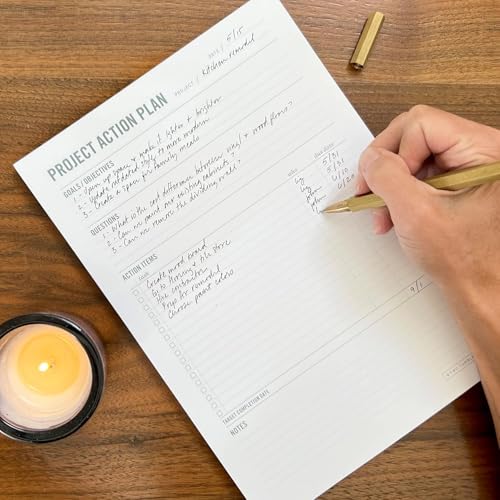 PROJECT ACTION PLAN
DATE / 5/15
PROJECT / Kitchen remodel
GOALS/OBJECTIVES
1 - Open up space & make it lighter + brighter
2 - Update outdated style to more modern
3 - Create a space for family meals
QUESTIONS
1 - What is the cost difference between vinyl + wood floors?
2 - Can we paint our existing cabinets?
3 - Can we remove the dividing wall?
ACTION ITEMS
WHO
DUE DATE
Create mood board 5/31
Go to flooring & tile store 5/31
Hire contractor 6/10
Prep for remodel 6/20
Choose paint colors
TARGET COMPLETION DATE 9/1
NOTES